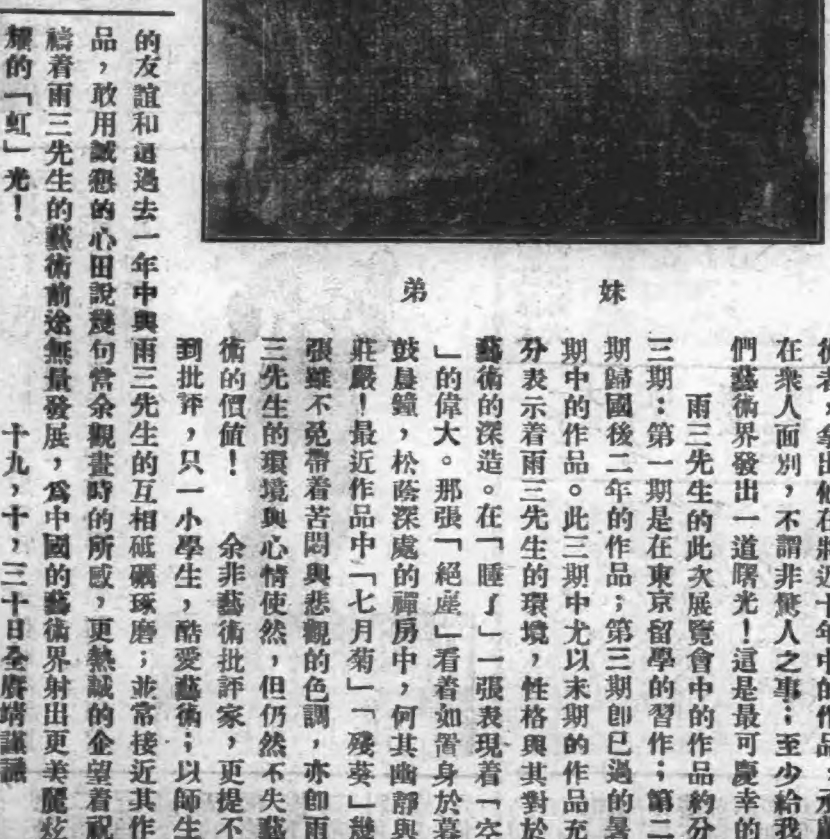 妹
弟
在衆人面別，不謂非驚人之事；至少給我
們藝術界發出一道曙光！這是最可慶幸的
雨三先生的此次展覽會中的作品約分
三期：第一期是在東京留學的習作；第二
期歸國後二年的作品；第三期卽已過的
期中的作品。此三期中尤以末期的作品充
分表示着雨三先生的環境，性格與其對於
藝術的深造。在「睡了」一張表現着「空
」的偉大。那張「絕崖」看着如置身於暮
鼓晨鐘，松蔭深處的禪房中，何其幽靜與
莊嚴！最近作品中「七月菊」「殘葵」幾
張雖不免帶着苦悶與悲觀的色調，亦卽雨
三先生的環境與心情使然，但仍然不失藝
術的價值！　余非藝術批評家，更提不
到批評，只一小學生，酷愛藝術；以師生
的友誼和過去一年中與雨三先生的互相砥礪琢磨；並常接近其作
品，敢用誠懇的心田說幾句當余觀畫時的所感，更熱誠的企望着祝
禱着雨三先生的藝術前途無量發展，爲中國的藝術界射出更美麗炫
耀的「虹」光！　十九，十，三十日全賡靖謹誌